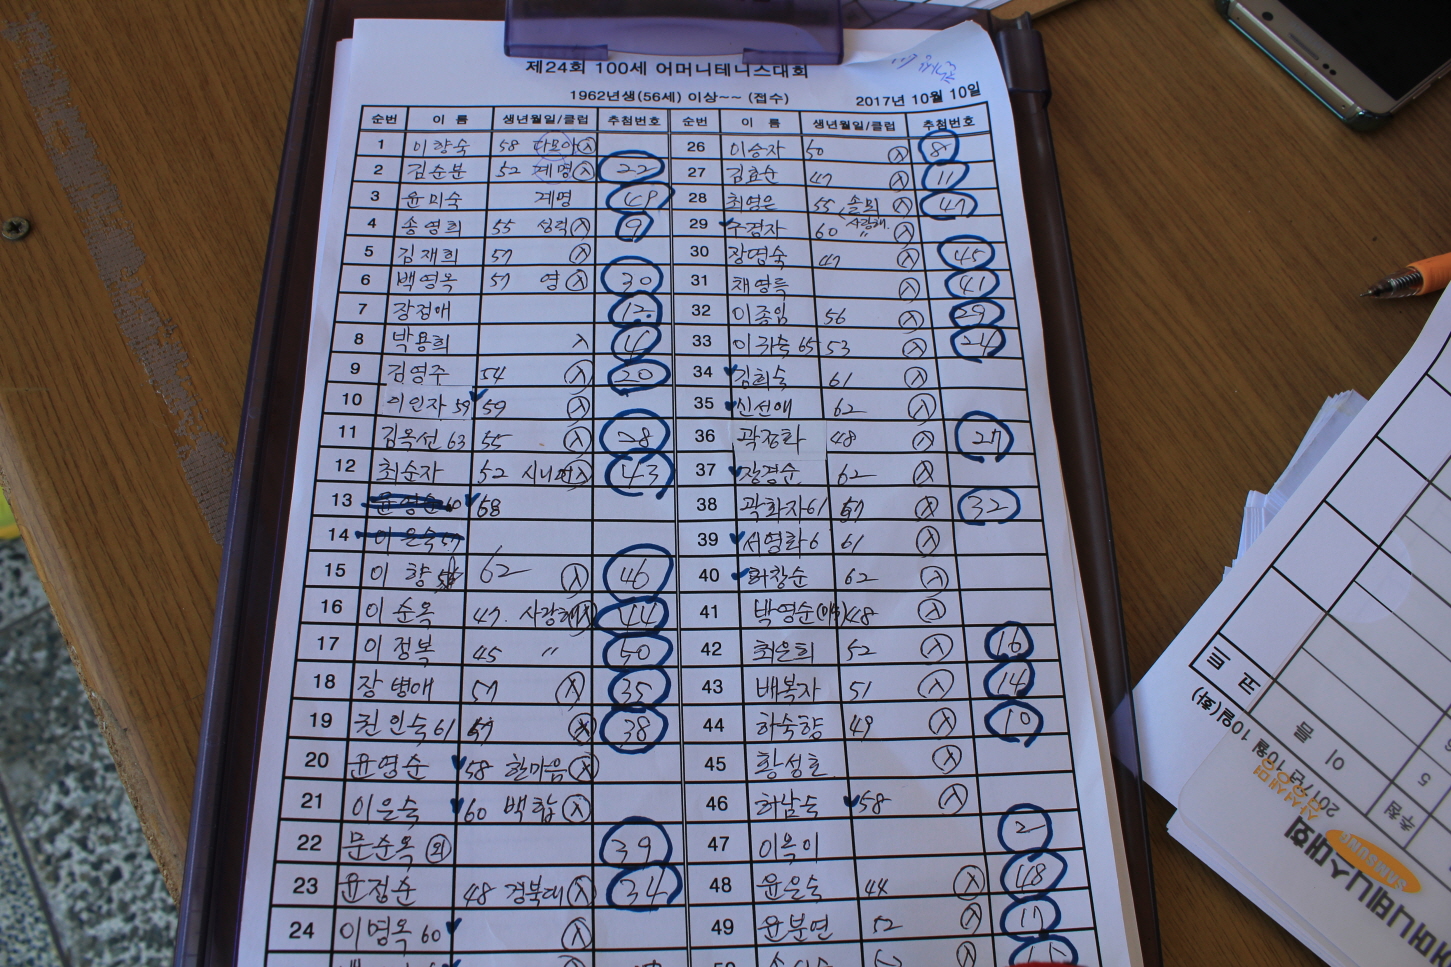 제24회 100세 어머니테니스대회
1962년생(56세) 이상~~ (접수)
2017년 10월 10일
순번 이 름 생년월일/클럽 추첨번호 순번 이 름 생년월일/클럽 추첨번호
1 이향숙 58 다모아 ㉦ 26 이승자 50 8
2 김순분 52 계명 22 27 김효순 47 11
3 윤미숙 계명 49 28 최영은 55 솔뫼 47
4 송영희 55 9 29 60 사랑해
5 김재희 57 30 장영숙 47 45
6 백영옥 57 영 30 31 채영륵 41
7 장정애 12 32 이종임 56 29
8 박용희 4 33 이귀숙 65 53 24
9 김영주 54 20 34 김희숙 61
10 이인자 59 59 35 신선애 62
11 김옥선 63 55 28 36 곽정화 48 27
12 최순자 52 시니어 43 37 장경순 62
13 윤영순 60 58 38 곽화자 61 57 32
14 이은숙 57 39 서영화 6 61
15 이향 62 46 40 허창순 62
16 이순옥 47. 사랑해 44 41 백영순 48
17 이정복 45 〃 50 42 최은희 52 16
18 장병애 57 35 43 배복자 51 14
19 권인숙 61 57 38 44 하숙향 49 10
20 윤영순 58 한마음 45 황성호
21 이은숙 60 백합 46 허남숙 58
22 문순옥 39 47 이옥이 2
23 윤정순 48 경북대 34 48 윤은숙 44 48
24 이명옥 60 49 윤분연 52 17
코트
10일(화)
2017년 10월 10일
이 름
추첨
5
삼성생명
SAMSUNG
어머니테니스대회